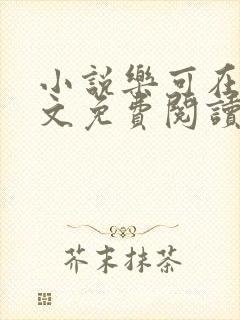 小說樂可在
文免費閱讀
芥末抹茶